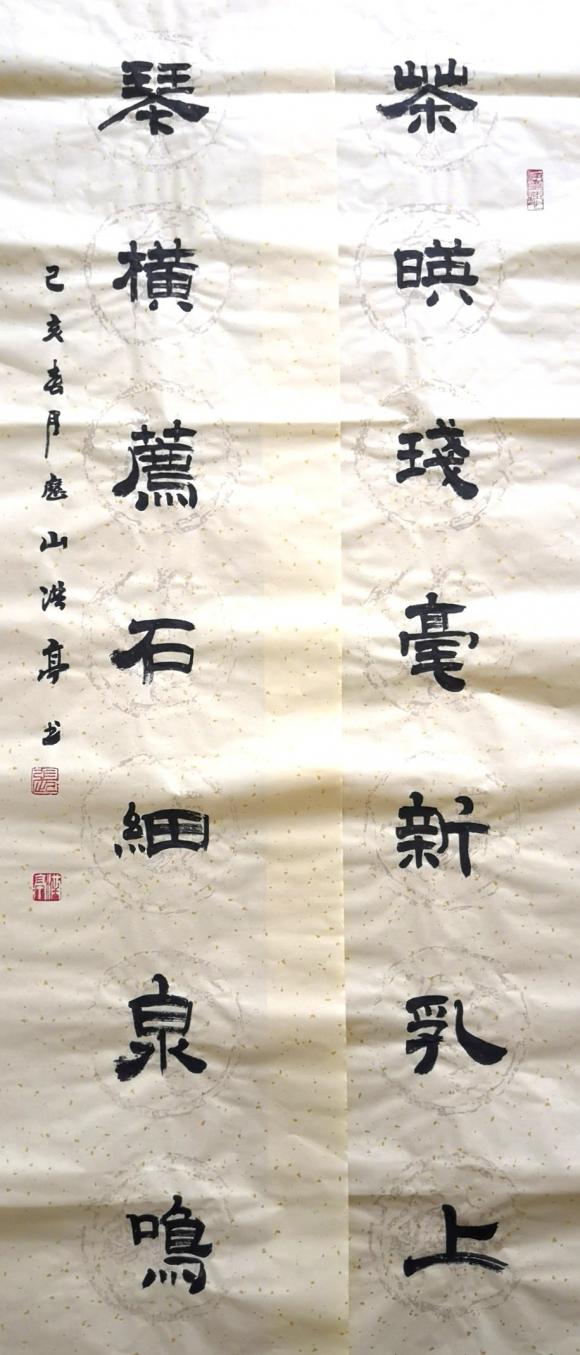 茶暎琖毫新乳上
琴橫薦石細泉鳴
己亥春月歷山洪亭书